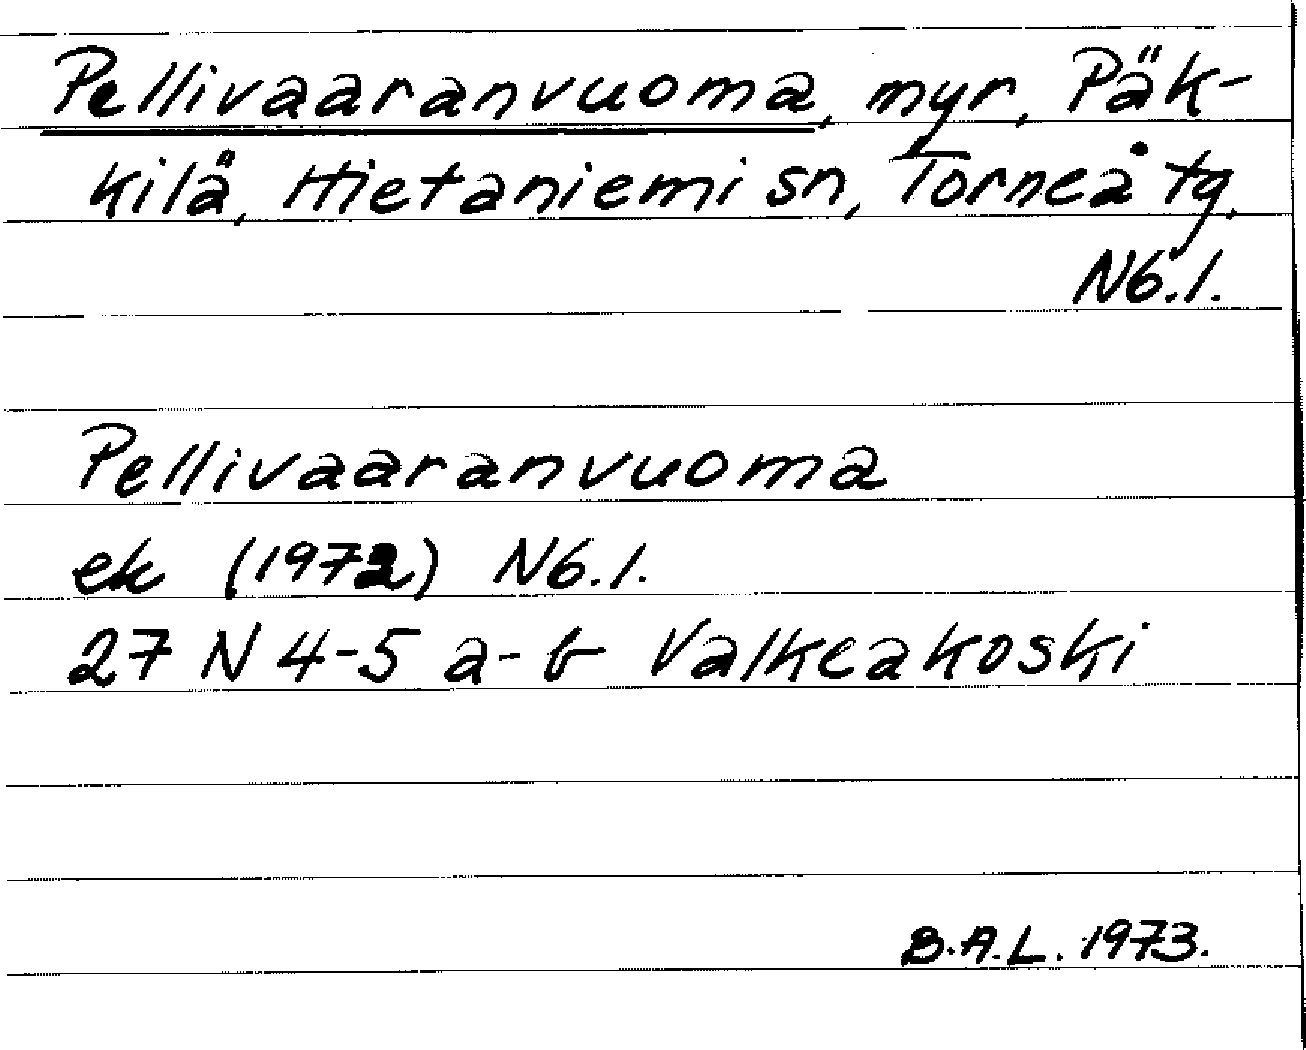 Pellivaaranvuoma, myr, Päk-
kilä, Hietaniemi sn, Torneå tg.
N6.1.
Pellivaaranvuoma
ek (1972) N6.1.
27 N 4-5 a-b Valkeakoski
B.A.L. 1973.